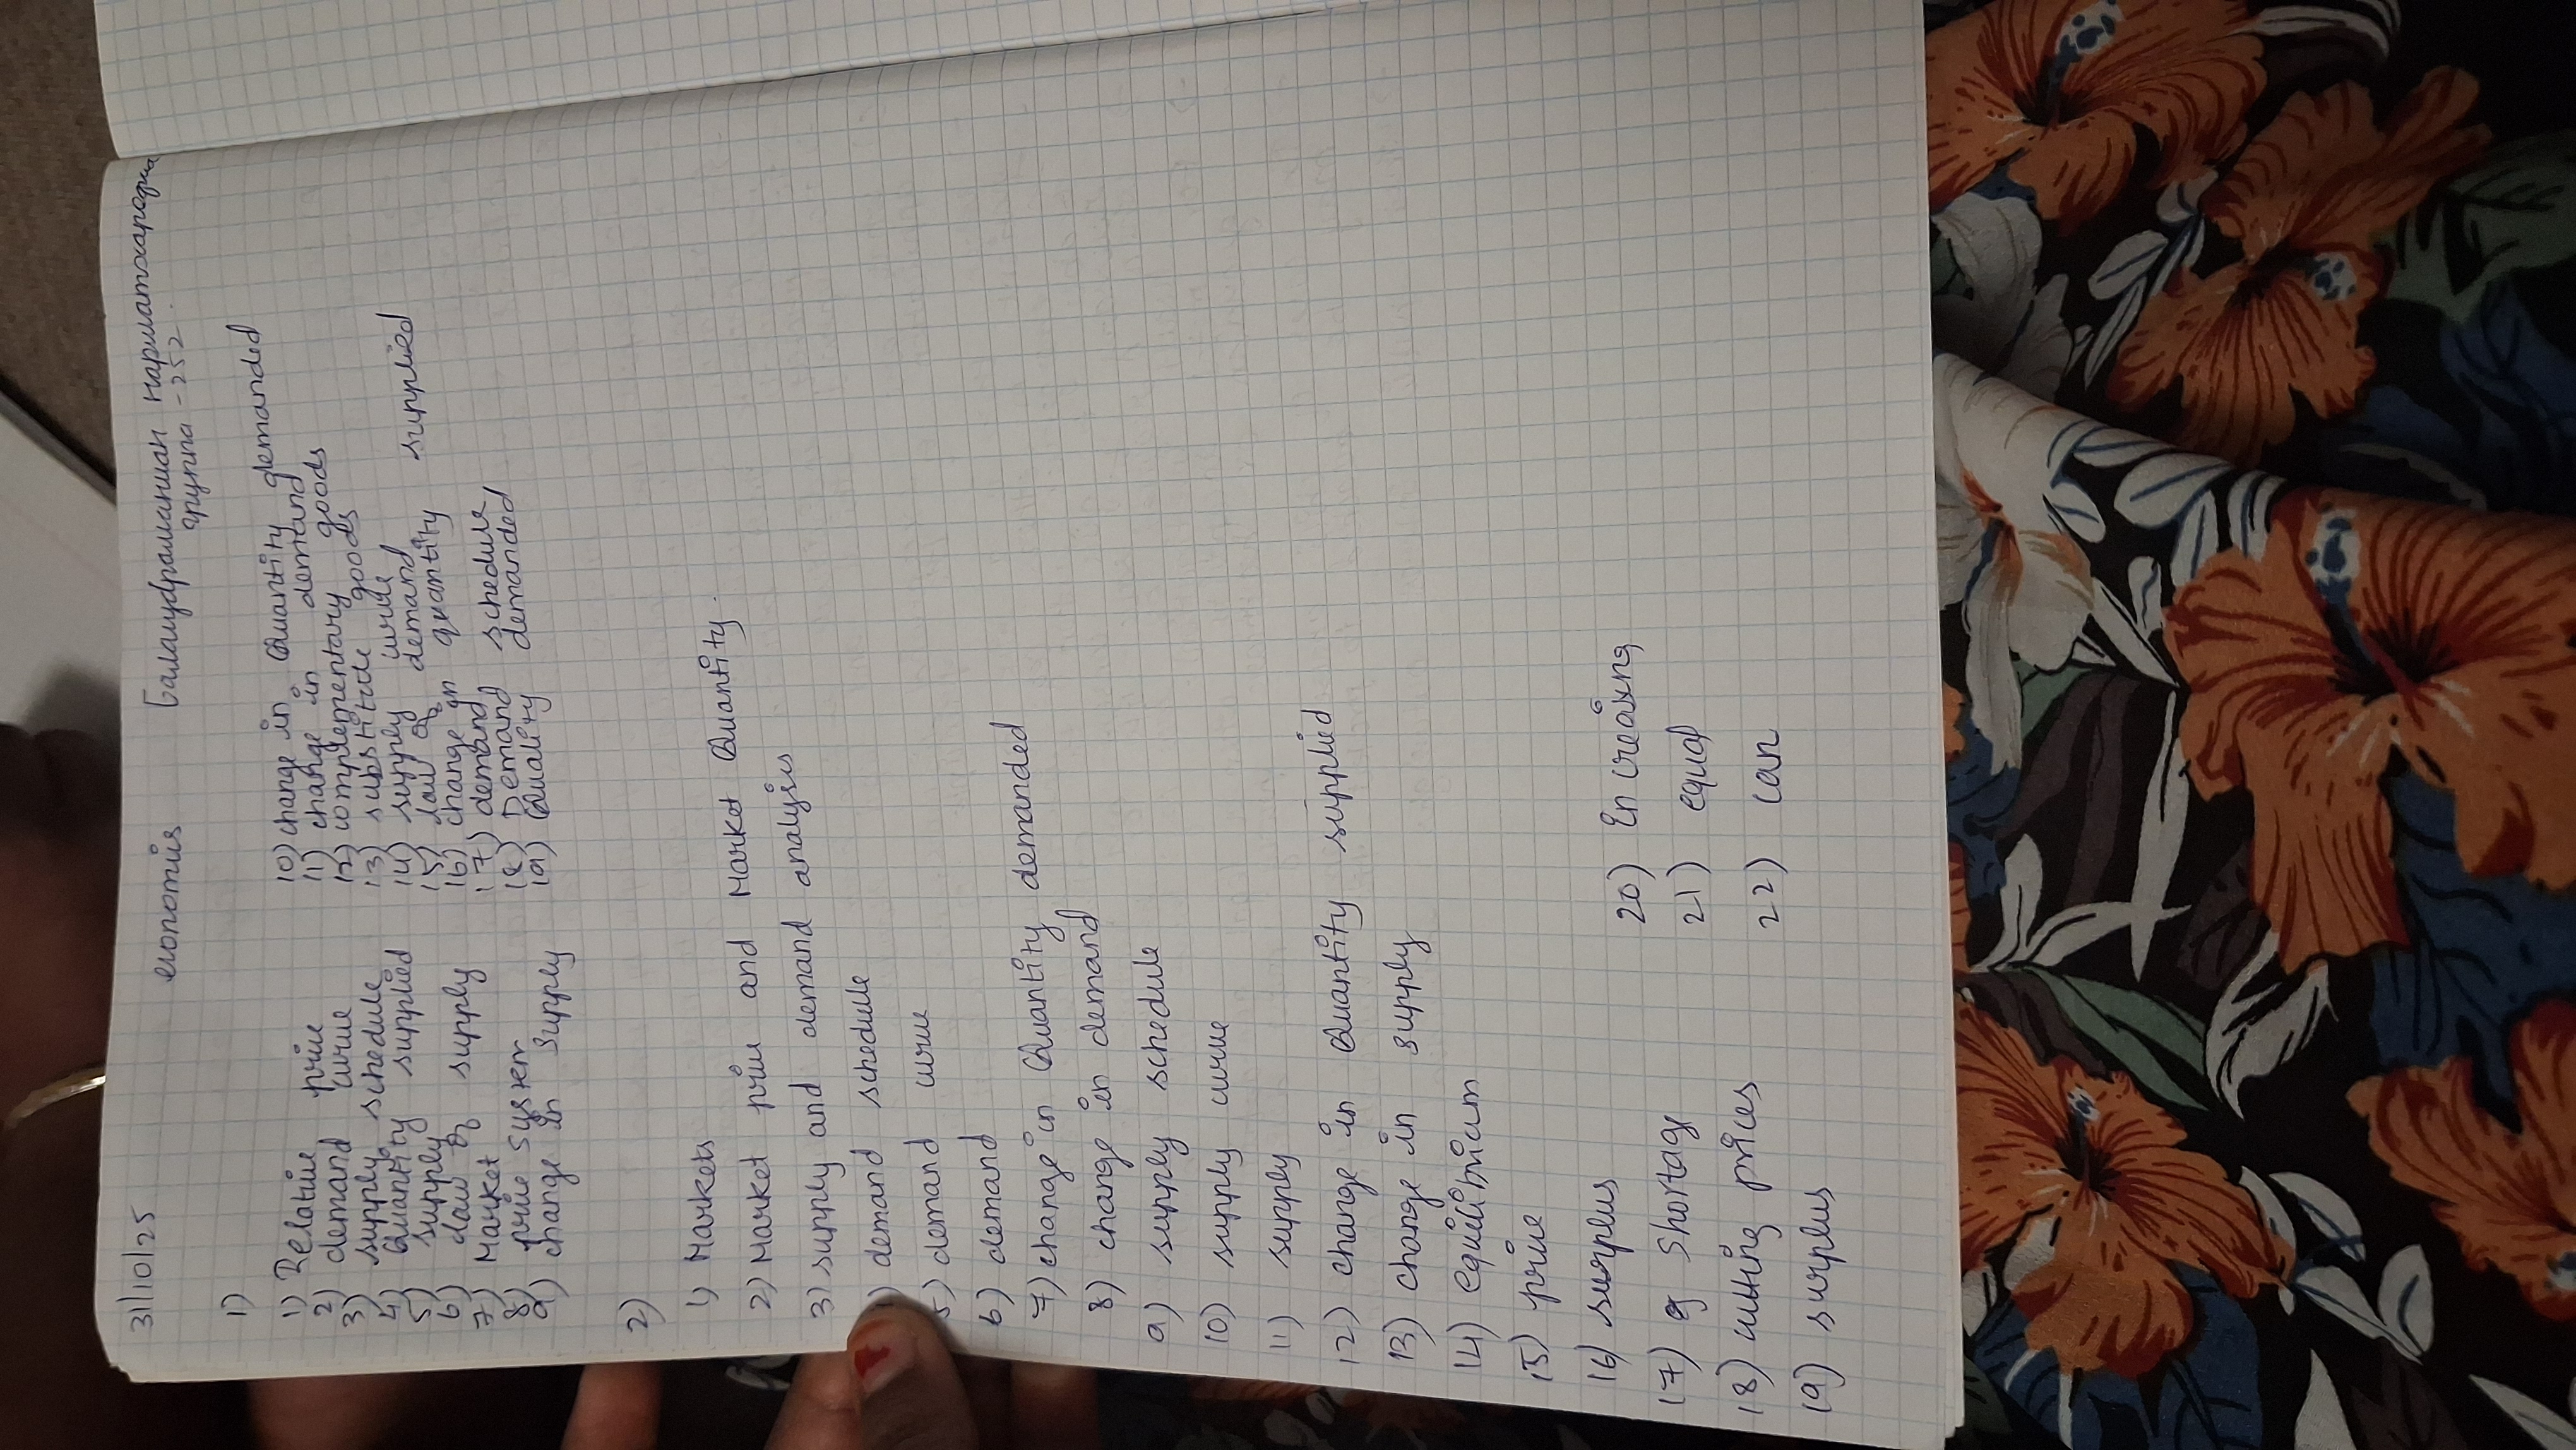 31/10/25 economics Балацубраманиан Нарматхараджа
группа - 252.
1)
1) Relative price
2) demand curve
3) supply schedule
4) Quantity supplied
5) supply
6) Law of supply
7) Market
8) price system
9) change in supply
10) change in Quantity demanded
11) change in demand
12) complementary goods
13) substitute goods
14) supply curve
15) Law of demand
16) change in quantity supplied
17) demand schedule
18) Demand demanded
19) Quality
2)
1) Markets
2) Market price and Market Quantity.
3) supply and demand analysis
4) demand schedule
5) demand curve
6) demand
7) change in Quantity demanded
8) change in demand
9) supply schedule
10) supply curve
11) supply
12) change in Quantity supplied
13) change in supply
14) equilibrium
15) price
16) surplus
17) a shortage
18) cutting prices
19) surplus
20) Increasing
21) equal
22) can